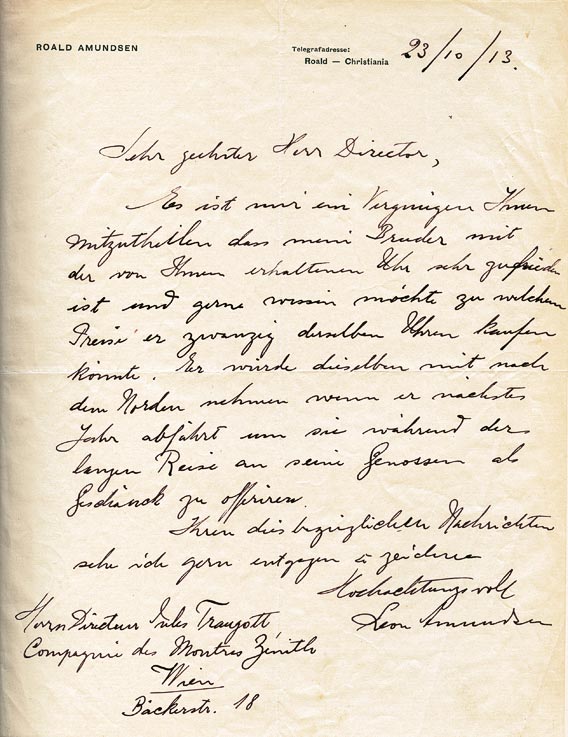 ROALD AMUNDSEN
Telegrafadresse:
Roald — Christiania
23/10/13.
Sehr geehrter Herr Director,
Es ist mir ein Vergnügen Ihnen
mitzutheilen dass mein Bruder mit
der von Ihnen erhaltenen Uhr sehr zufrieden
ist und gerne wissen möchte zu welchem
Preise er zwanzig derselben Uhren kaufen
könnte. Er wurde dieselben mit nach
dem Norden nehmen wenn er nächstes
Jahr abfährt um sie während der
langen Reise an seine Genossen als
Geschänck zu offriren.
Ihren diesbezüglichen Nachrichten
sehe ich gern entgegen & zeichne
Hochachtungsvoll
Leon Amundsen
Herrn Directeur Jules Traugott
Compagnie des Montres Zénith
Wien
Bäckerstr. 18